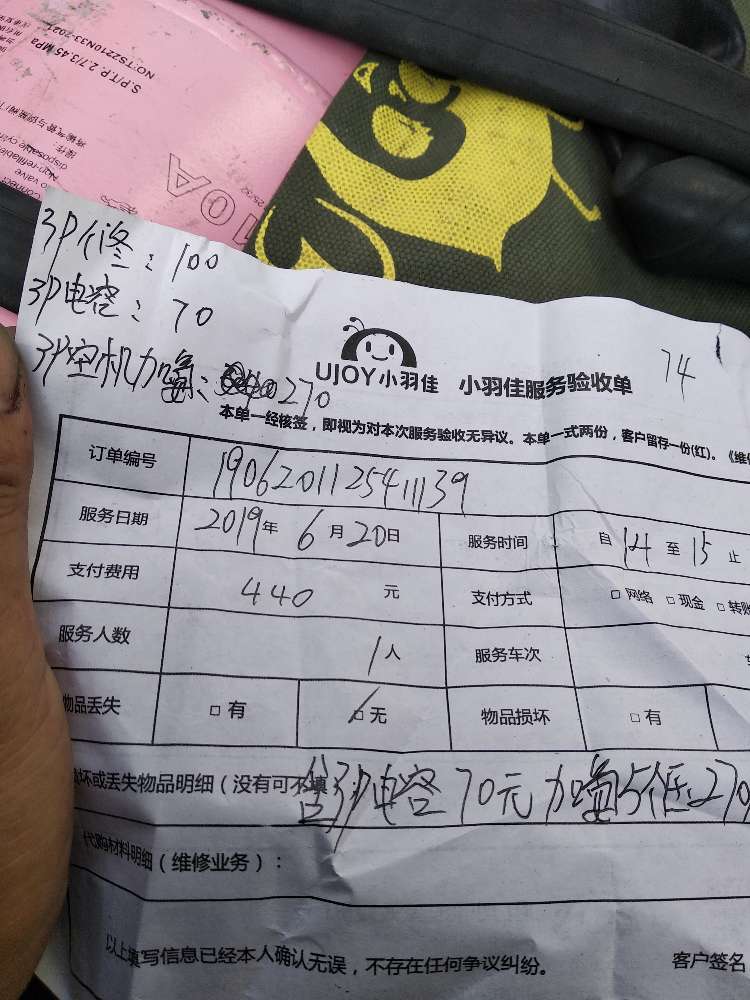 S.P/T.P. 2.7/3.45 MPa
NO:TS2210N33-2021
Non-refillable
10A
3P修:100
3P电容:70
3P空机加氟:270
74
UJOY小羽佳 小羽佳服务验收单
本单一经核签，即视为对本次服务验收无异议。本单一式两份，客户留存一份(红)。《维
订单编号 190620112541139
服务日期 2019年6月20日 服务时间 自14至15止
支付费用 440 元 支付方式 □网络 □现金 □转账
服务人数 1人 服务车次
物品丢失 □有 □无 物品损坏 □有
坏或丢失物品明细（没有可不填
含3P电容70元 加氟5低270
代购材料明细（维修业务）：
以上填写信息已经本人确认无误，不存在任何争议纠纷。 客户签名